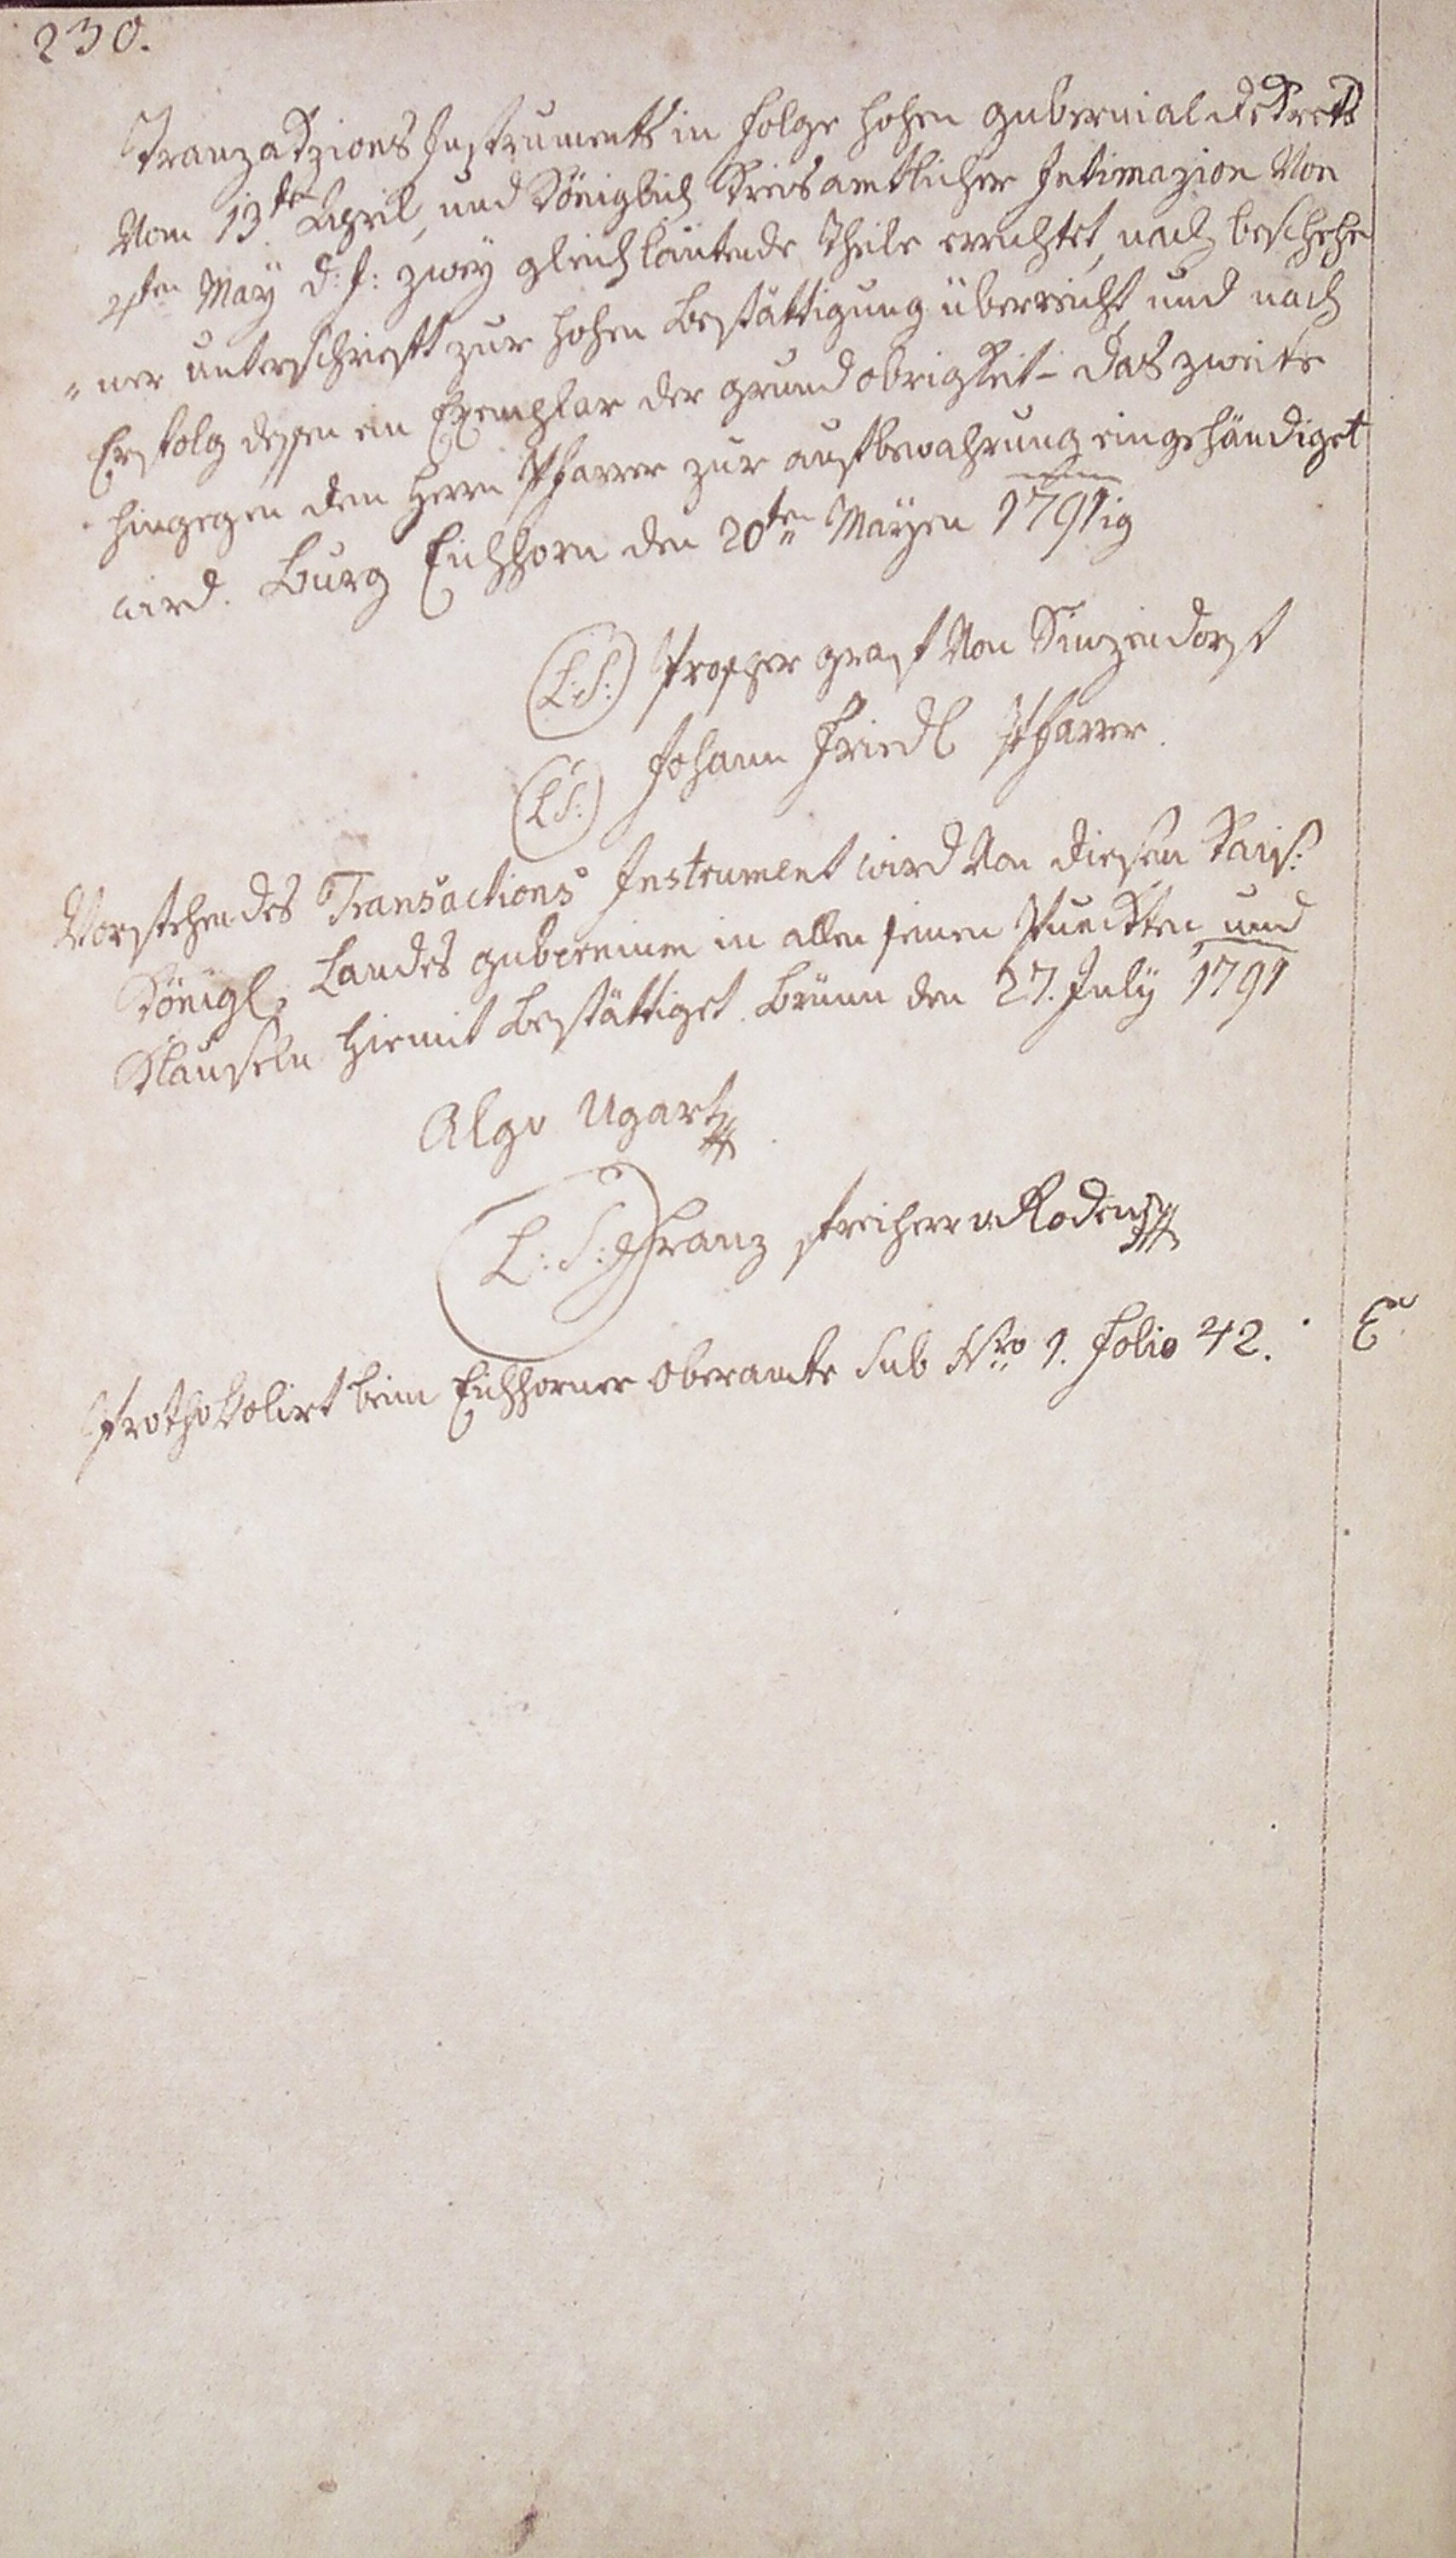 230.
Tranzakzions Instruments in Folge hohen gubernial dekrets
Vom 13ten April, und Königlich Kreisamtlicher Intimazion Von
4ten May d: J: zwey gleichlautende Theile errichtet, nach beschehe
"ner unterschrift zur hohen Bestättigung überreicht, und nach
Erfolg dessen ein Exemplar der grundobrigkeit - das zweite
hingegen dem Herrn Pfarrer zur aufbewahrung eingehändiget
wird. Burg Eichhorn den 20ten Mayen 1791ig
(L:S:) Prosper graf Von Sinzendorf
(L:S:) Johann Friedl Pfarrer.
Vorstehendes Transactions Instrument wird Von diesem Kais:
Königl. Landes gubernium in allen seinen Punckten und
Klauseln hiemit Bestättiget. Brünn den 27. July 1791
Algo Ugart
(L:S:) Franz Freiherr v: Roden
Prothokolirt beim Eichhorner Oberamte Sub Nro 1. Folio 42.